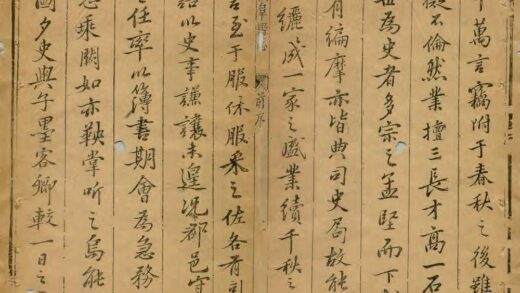 萬言竊附于春秋之後雖
擬不倫然業擅三長才高一石
為史者多宗之孟堅而下
有編摩亦皆典司史局故能
纚成一家之盛業續千秋之
前序
言至于服休服采之佐各有
以史事謙讓未遑況郡邑守
之任率以簿書期會為急務
乘闕如亦鞅掌聽之烏能
國夕史與子墨客卿較一日之